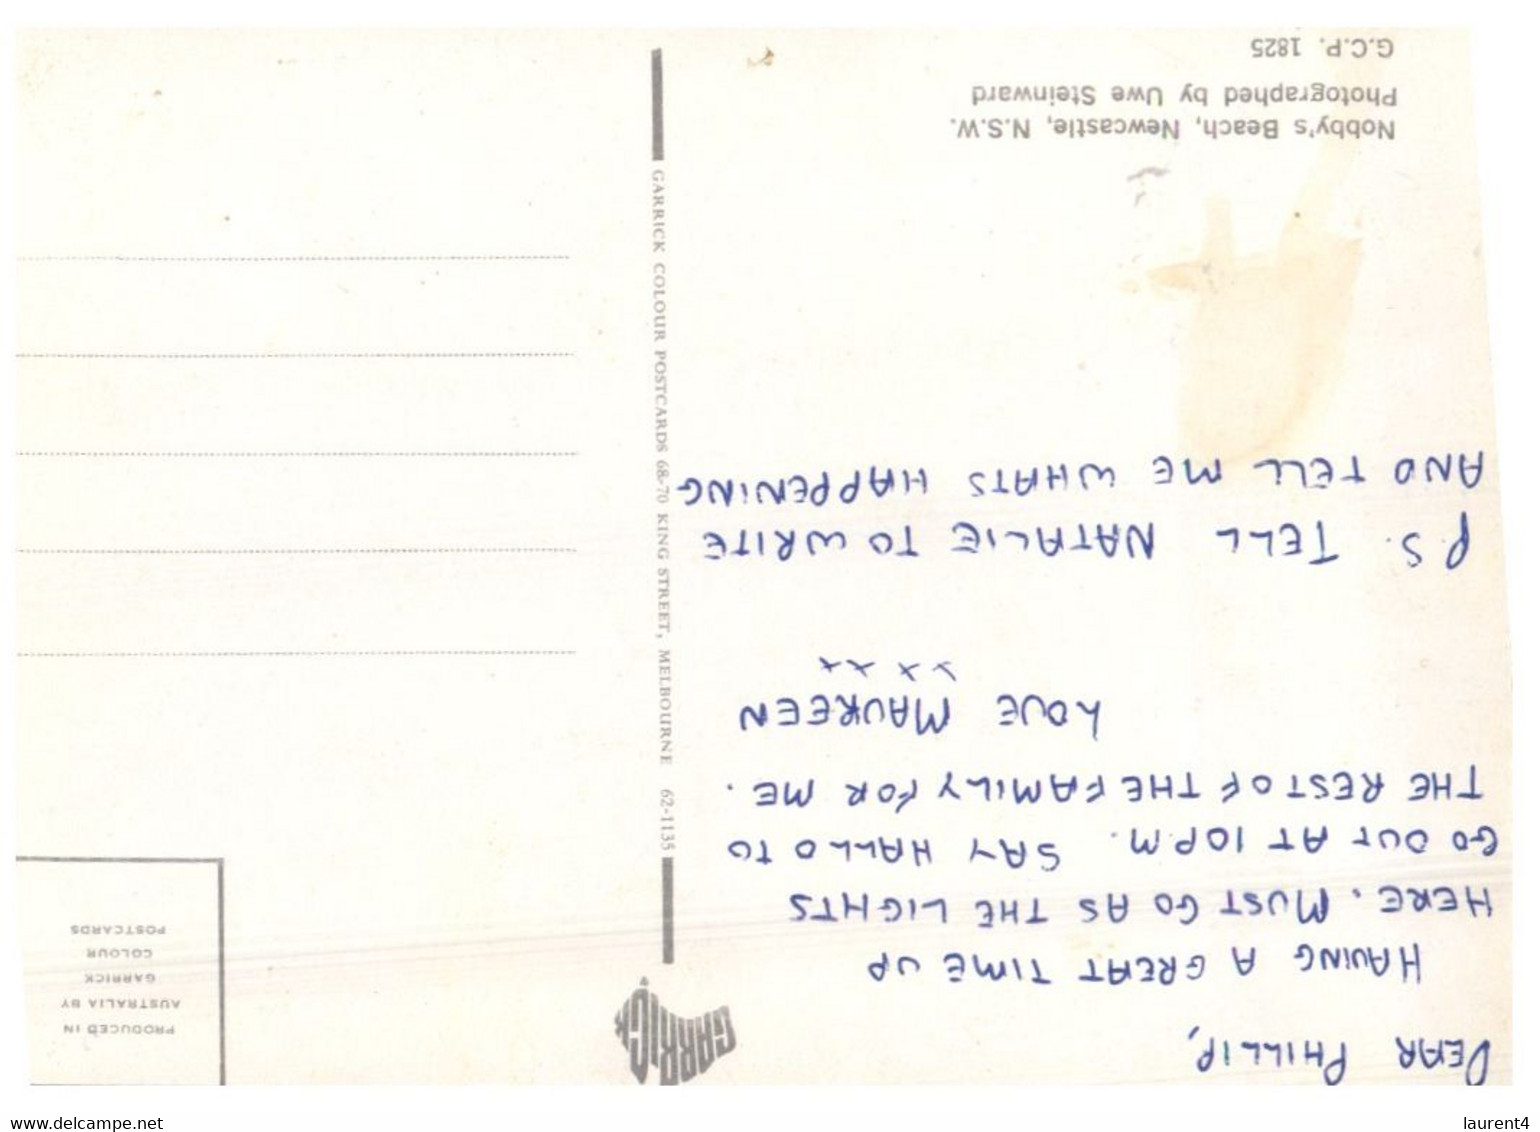 DEAR PHILLIP,
HAVING A GREAT TIME UP
HERE. MUST GO AS THE LIGHTS
GO OUT AT 10P.M. SAY HALLO TO
THE REST OF THE FAMILY FOR ME.
LOVE MAUREEN
xxxx
P.S. TELL NATALIE TO WRITE
AND TELL ME WHATS HAPPENING
Nobby's Beach, Newcastle, N.S.W.
Photographed by Uwe Steinward
G.C.P. 1825
GARRICK
GARRICK COLOUR POSTCARDS 68-70 KING STREET, MELBOURNE 62-1135
PRODUCED IN
AUSTRALIA BY
GARRICK
COLOUR
POSTCARDS
www.delcampe.net
laurent4